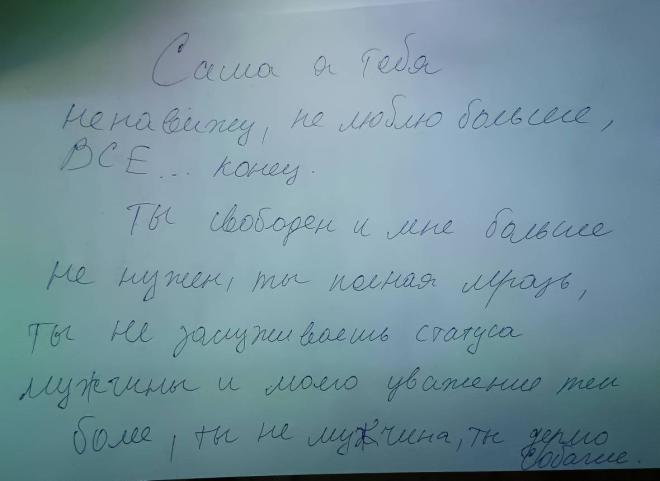 Саша я тебя
ненавижу, не люблю больше,
ВСЕ... конец.
ты свободен и мне больше
не нужен, ты полная мразь,
ты не заслуживаешь статуса
мужчины и моего уважение тем
более, ты не мужчина, ты дермо
собачие.